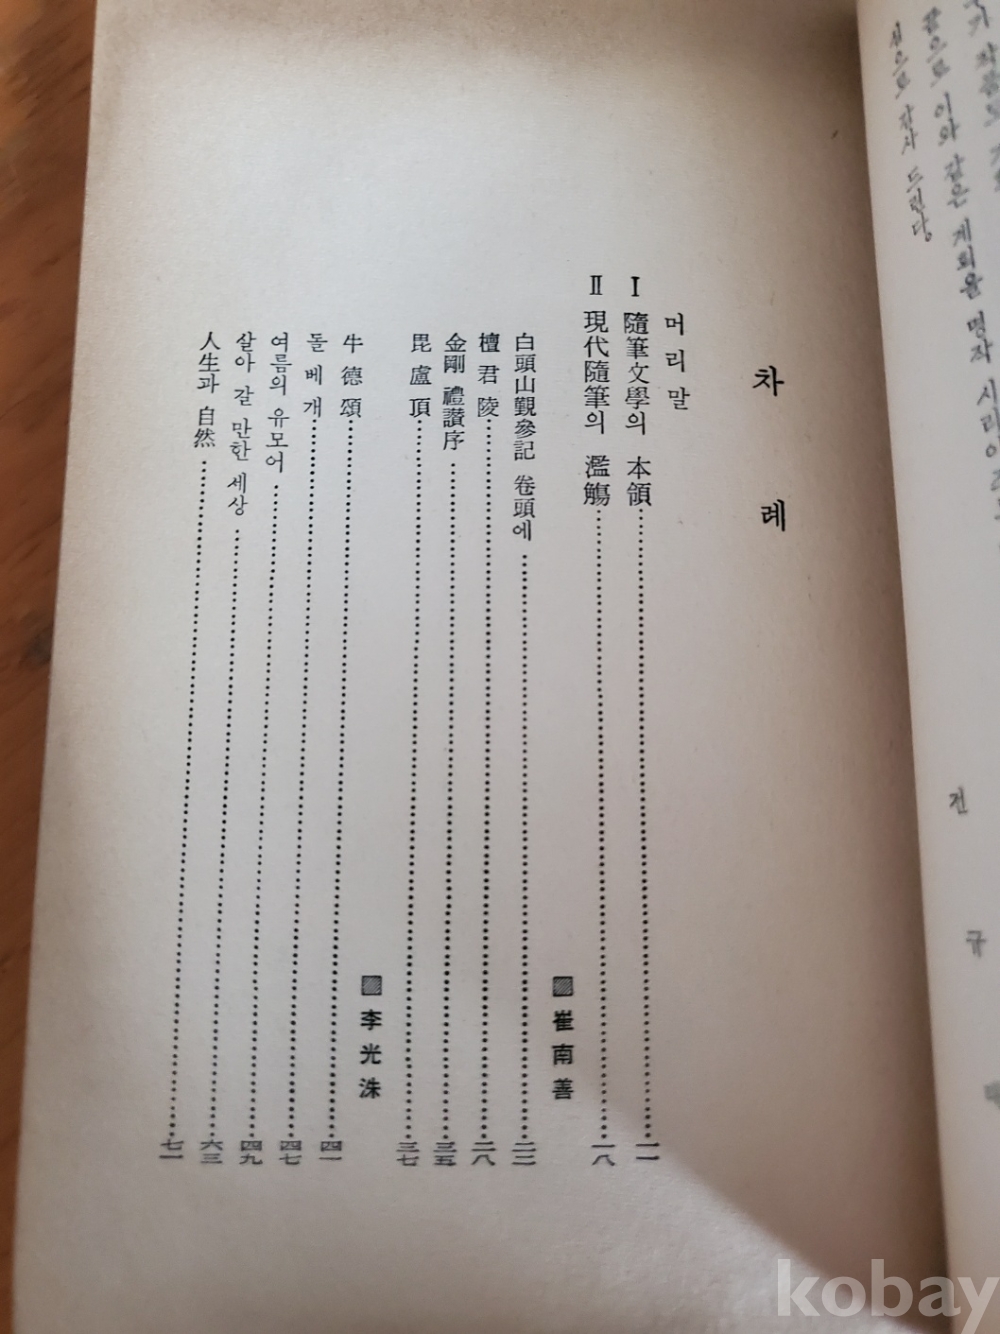 끝으로 이와 같은 계획을 명작
심으로 감사 드린다.
전 규
차 례
머리말
Ⅰ 隨筆文學의 本領……一一
Ⅱ 現代隨筆의 濫觴……一八
▨ 崔南善
白頭山覲參記 卷頭에……二二
檀君陵……二八
金剛禮讚序……三五
毘盧頂……三七
▨ 李光洙
牛德頌……四一
돌베개……四七
여름의 유모어……四九
살아 갈 만한 세상……六三
人生과 自然……七一
kobay